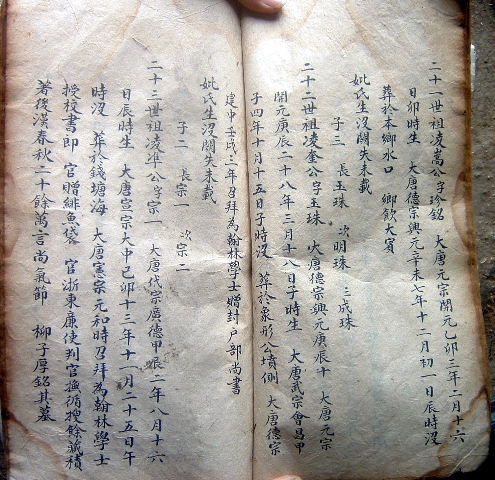 二十一世祖凌嵩公字珍銘　大唐元宗開元乙卯三年二月十六
日卯時生　大唐德宗興元辛未七年十二月初一日辰時沒
葬於本鄉水口　鄉飲大賓
妣氏生沒闕失未載
子三　長玉珠　次明珠　三成珠
二十二世祖凌奎公字玉珠　大唐德宗興元庚辰十　大唐元宗
開元庚辰二十八年三月十八日子時生　大唐武宗會昌甲
子四年十月十五日子時沒　葬於象形公墳側　大唐德宗
建中壬戌三年召拜為翰林學士贈封戶部尚書
妣氏生沒闕失未載
子二　長宗一　次宗二
二十三世祖凌準公字宗一　大唐代宗廣德甲辰二年八月十六
日辰時生　大唐宣宗大中己卯十三年十一月二十五日午
時沒　葬於錢塘海　大唐憲宗元和時召拜為翰林學士
授校書郎　官贈緋魚袋　官浙東廉使判官撫循搜餘藏積
著後漢春秋二十餘萬言尚氣節　柳子厚銘其墓